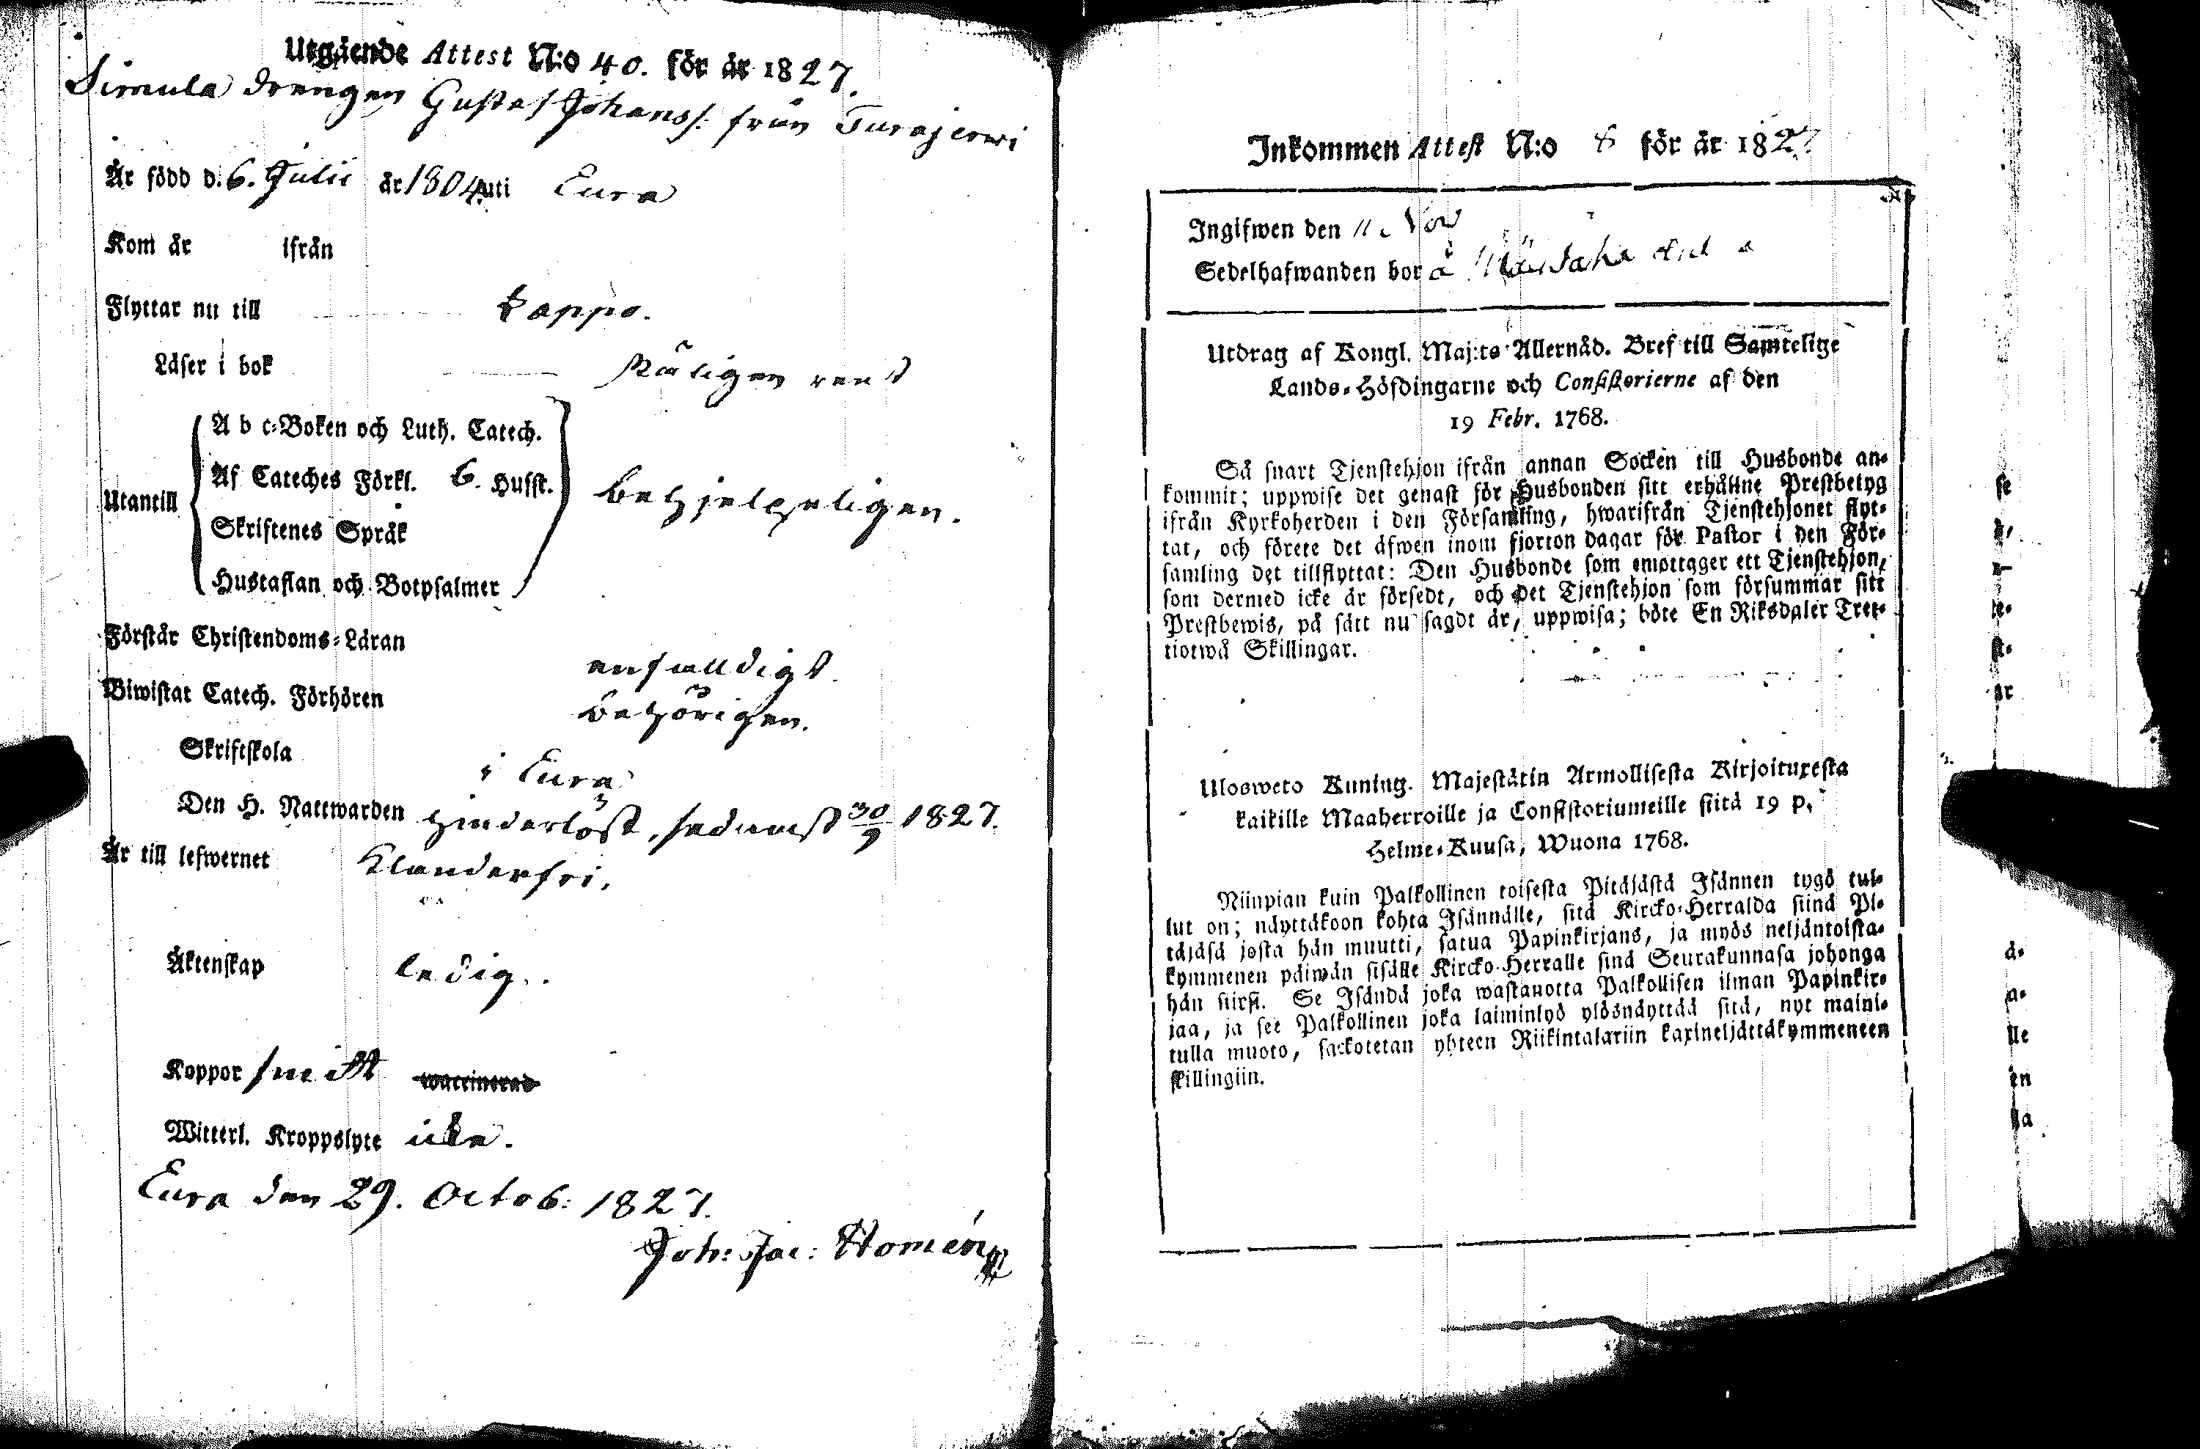 Utgående Attest N:o 40. för år 1827.
Simula drengen Gustaf Johanss: från Turajerwi
Är född d. 6. Julii år 1804 uti Eura
Kom år ifrån
Flyttar nu till Lappo.
Läser i bok Måligen rent
Utantill
A b c-Boken och Luth. Catech.
Af Cateches Förkl. 6. Hufst.
Skriftenes Språk
Hustaflan och Botpsalmer
behjelpeligen.
Förstår Christendoms-Läran enfalldigt.
Biwistat Catech. Förhören behörigen.
Skriftskola i Eura
Den H. Nattwarden hinderlöst, sednast 30/9 1827.
Är till lefwernet Klanderfri.
Äktenskap ledig.
Koppor smitt waccinerad
Witterl. Kroppslyte icke.
Eura den 29. Octob: 1827.
Joh: Jac: Homén
Inkommen Attest N:o 8 för år 1827
Ingifwen den 11 Nov
Sedelhafwanden bor å
Utdrag af Kongl. Maj:ts Allernåd. Bref till Samtelige
Lands-Höfdingarne och Consistorierne af den
19 Febr. 1768.
Så snart Tjenstehjon ifrån annan Socken till Husbonde an-
kommit; uppwise det genast för Husbonden sitt erhållne Prestbetyg
ifrån Kyrkoherden i den Församling, hwarifrån Tjenstehjonet flyt-
tat, och förete det äfwen inom fjorton dagar för Pastor i den För-
samling det tillflyttat: Den Husbonde som emottager ett Tjenstehjon,
som dermed icke är försedt, och det Tjenstehjon som försummar sitt
Prestbewis, på sätt nu sagdt är, uppwisa; böte En Riksdaler Tret-
tiotwå Skillingar.
Ulosweto Kuning. Majestätin Armollisesta Kirjoituxesta
kaikille Maaherroille ja Consistoriumeille siitä 19 p.
Helme-Kuusa, Wuona 1768.
Niinpian kuin Palkollinen toisesta Pitäjästä Isännen tygö tul-
lut on; näyttäkoon kohta Isännälle, sitä Kircko-Herralda siinä Pi-
täjäsä josta hän muutti, satua Papinkirjans, ja myös neljäntoista-
kymmenen päiwän sisälle Kircko-Herralle sinä Seurakunnasa johonga
hän siirsi. Se Isändä joka wastanotta Palkollisen ilman Papinkir-
jaa, ja see Palkollinen joka laiminlyö ylösnäyttää sitä, nyt maini-
tulla muoto, sackotetan yhteen Riikintalariin kaxineljättäkymmeneen
skillingiin.